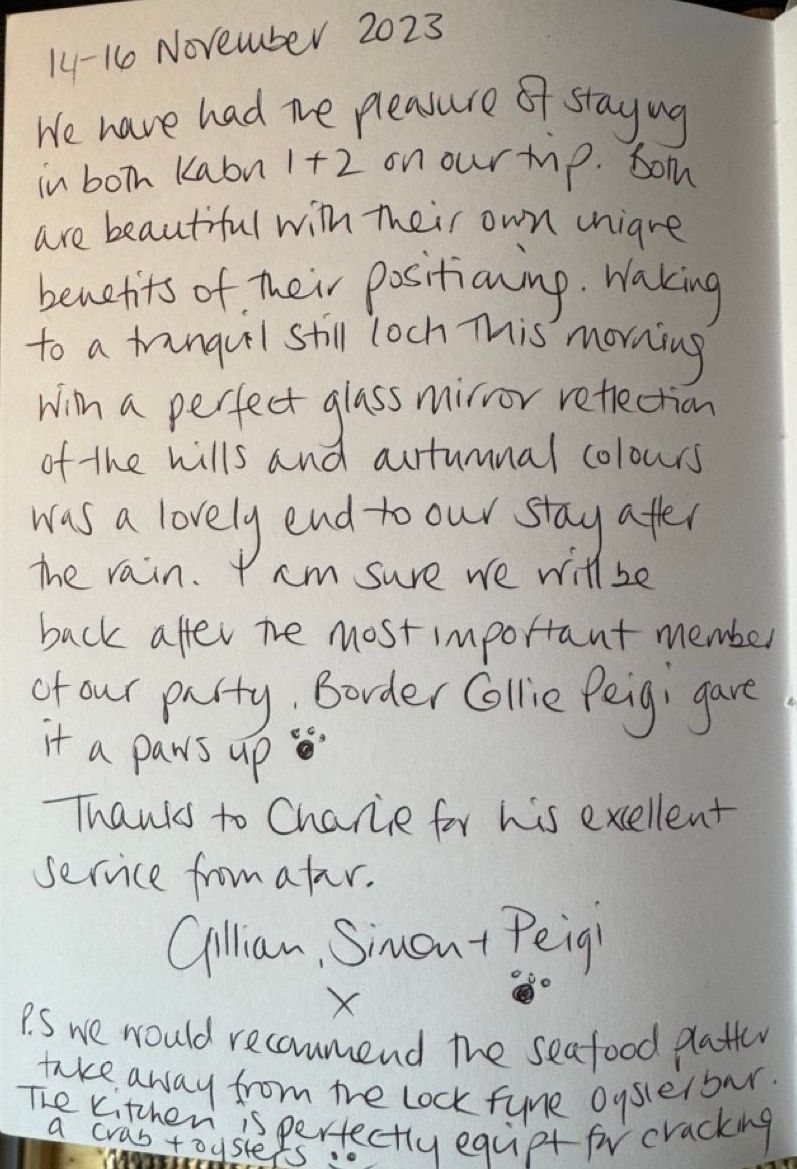 14-16 November 2023
We have had the pleasure of staying
in both Kabn 1+2 on our trip. Both
are beautiful with their own unique
benefits of their positioning. Waking
to a tranquil still loch this morning
with a perfect glass mirror reflection
of the hills and autumnal colours
was a lovely end to our stay after
the rain. I am sure we will be
back after the most important member
of our party, Border Collie Peigi gave
it a paws up
Thanks to Charlie for his excellent
service from afar.
Gillian, Simon + Peigi
X
P.S we would recommend the seafood platter
take away from the Lock Fyne Oyster bar.
The kitchen is perfectly equipt for cracking
a crab + oysters